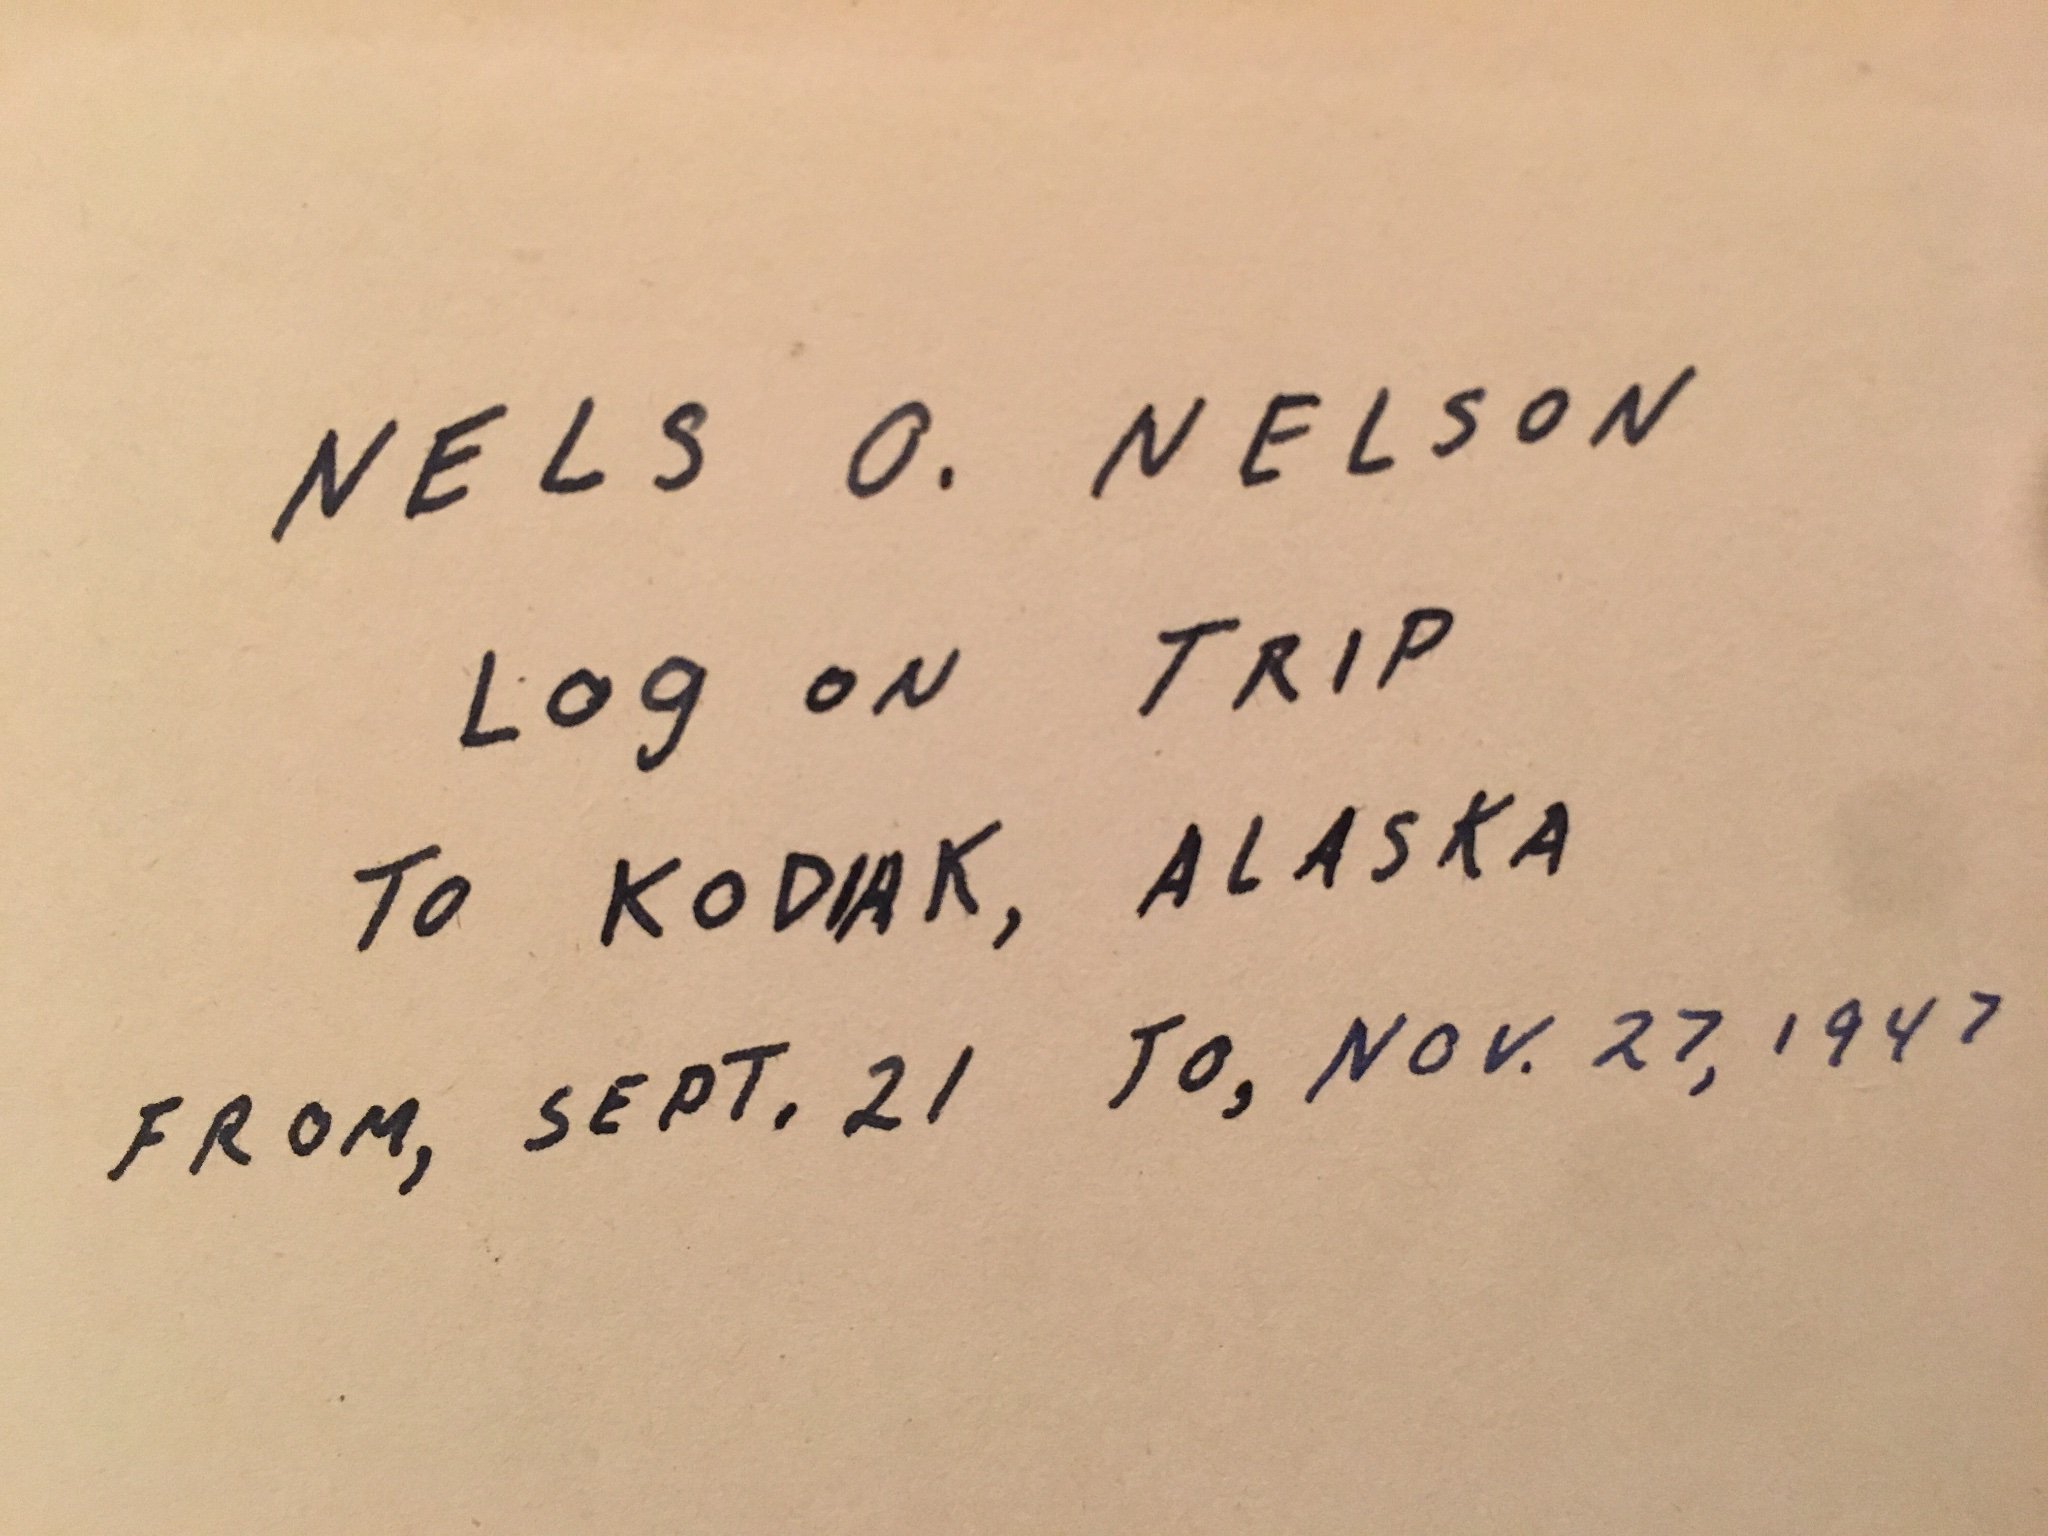 NELS O. NELSON
LOg ON TRIP
TO KODIAK, ALASKA
FROM, SEPT. 21 TO, NOV. 27, 1947